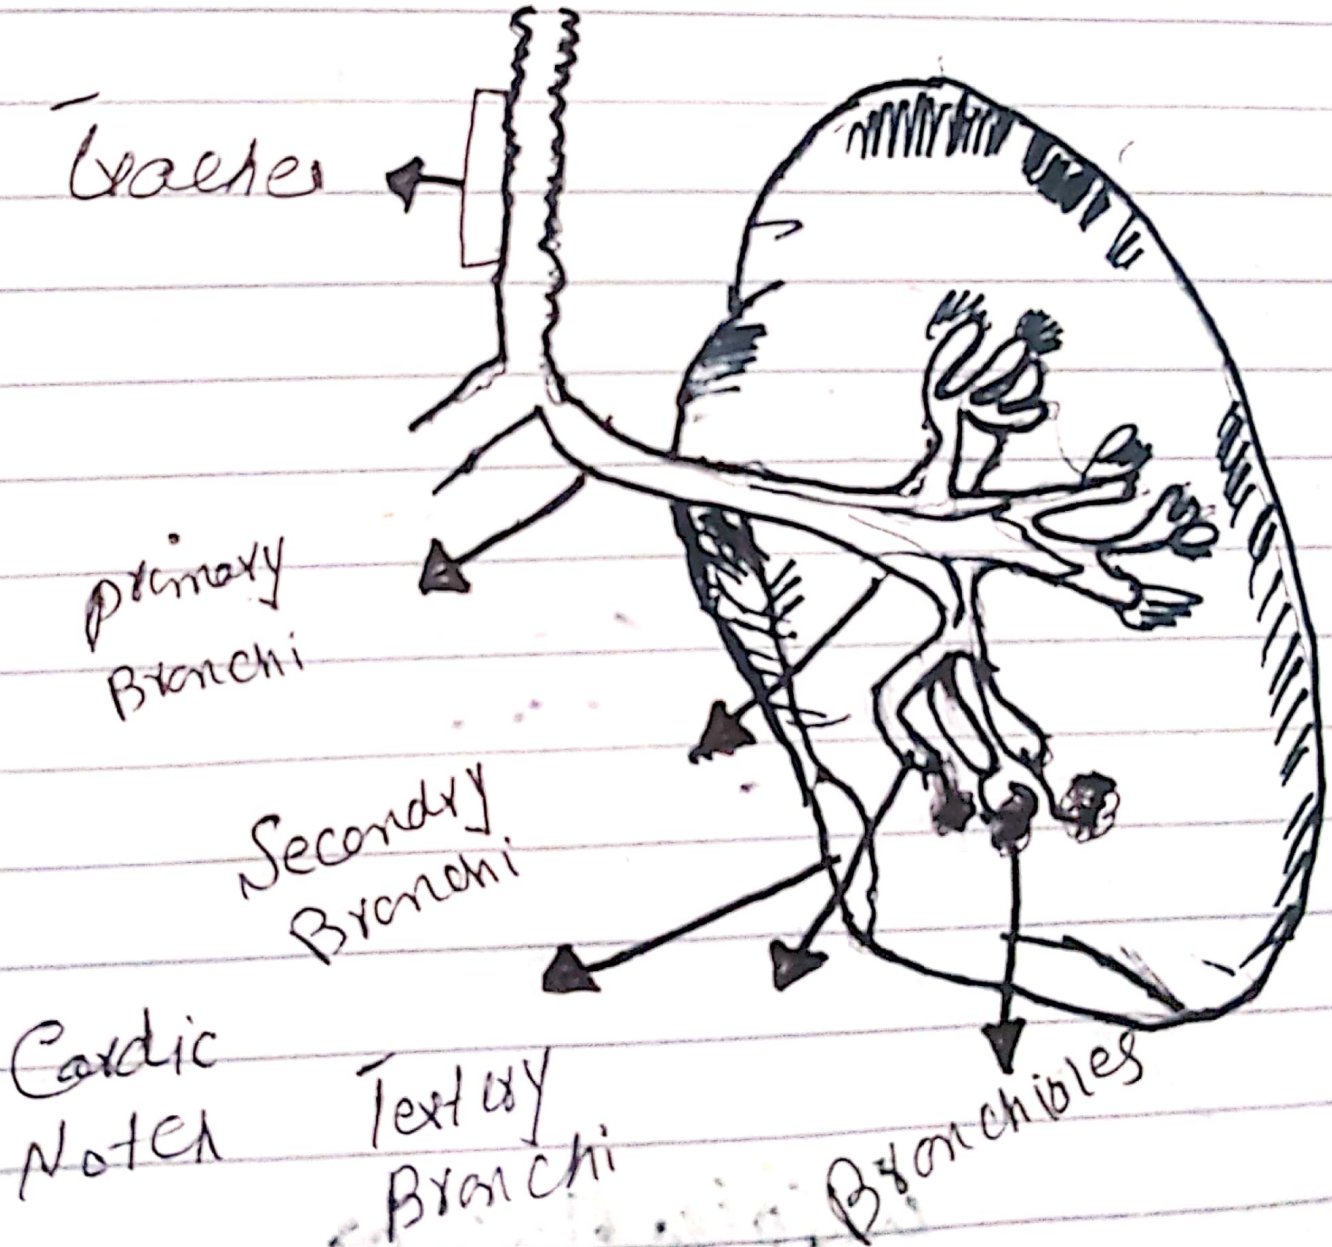 Trachea
primary
Bronchi
Secondry
Bronchi
Cardic
Notch
Tertiry
Bronchi
Bronchioles